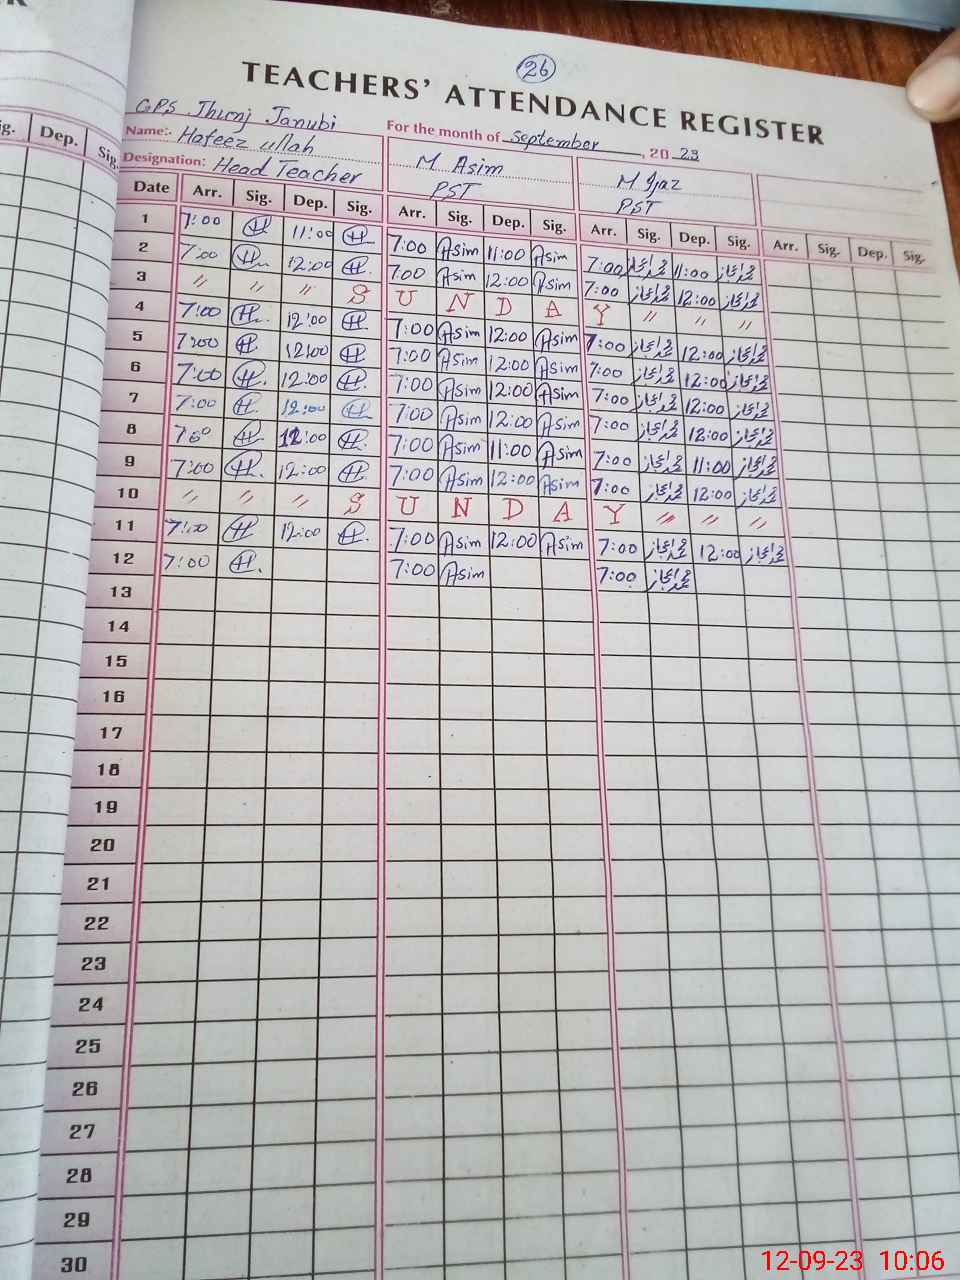 26
TEACHERS' ATTENDANCE REGISTER
GPS Jhurnj Janubi
For the month of September, 2023
Name:- Hafeez ullah
Designation: Head Teacher
M Asim
PST
M Ijaz
PST
Sig. Dep. Sig.
Date Arr. Sig. Dep. Sig. Arr. Sig. Dep. Sig. Arr. Sig. Dep. Sig. Arr. Sig. Dep. Sig.
1 7:00 H 11:00 H 7:00 Asim 11:00 Asim 7:00 محمد اعجاز 11:00 محمد اعجاز
2 7:00 H 12:00 H 7:00 Asim 12:00 Asim 7:00 محمد اعجاز 12:00 محمد اعجاز
3 〃 〃 〃 S U N D A Y 〃 〃 〃
4 7:00 H 12:00 H 7:00 Asim 12:00 Asim 7:00 محمد اعجاز 12:00 محمد اعجاز
5 7:00 H 12:00 H 7:00 Asim 12:00 Asim 7:00 محمد اعجاز 12:00 محمد اعجاز
6 7:00 H 12:00 H 7:00 Asim 12:00 Asim 7:00 محمد اعجاز 12:00 محمد اعجاز
7 7:00 H 12:00 H 7:00 Asim 12:00 Asim 7:00 محمد اعجاز 12:00 محمد اعجاز
8 7:00 H 12:00 H 7:00 Asim 11:00 Asim 7:00 محمد اعجاز 11:00 محمد اعجاز
9 7:00 H 12:00 H 7:00 Asim 12:00 Asim 7:00 محمد اعجاز 12:00 محمد اعجاز
10 〃 〃 〃 S U N D A Y 〃 〃 〃
11 7:00 H 12:00 H 7:00 Asim 12:00 Asim 7:00 محمد اعجاز 12:00 محمد اعجاز
12 7:00 H 7:00 Asim 7:00 محمد اعجاز
13
14
15
16
17
18
19
20
21
22
23
24
25
26
27
28
29
30
12-09-23 10:06